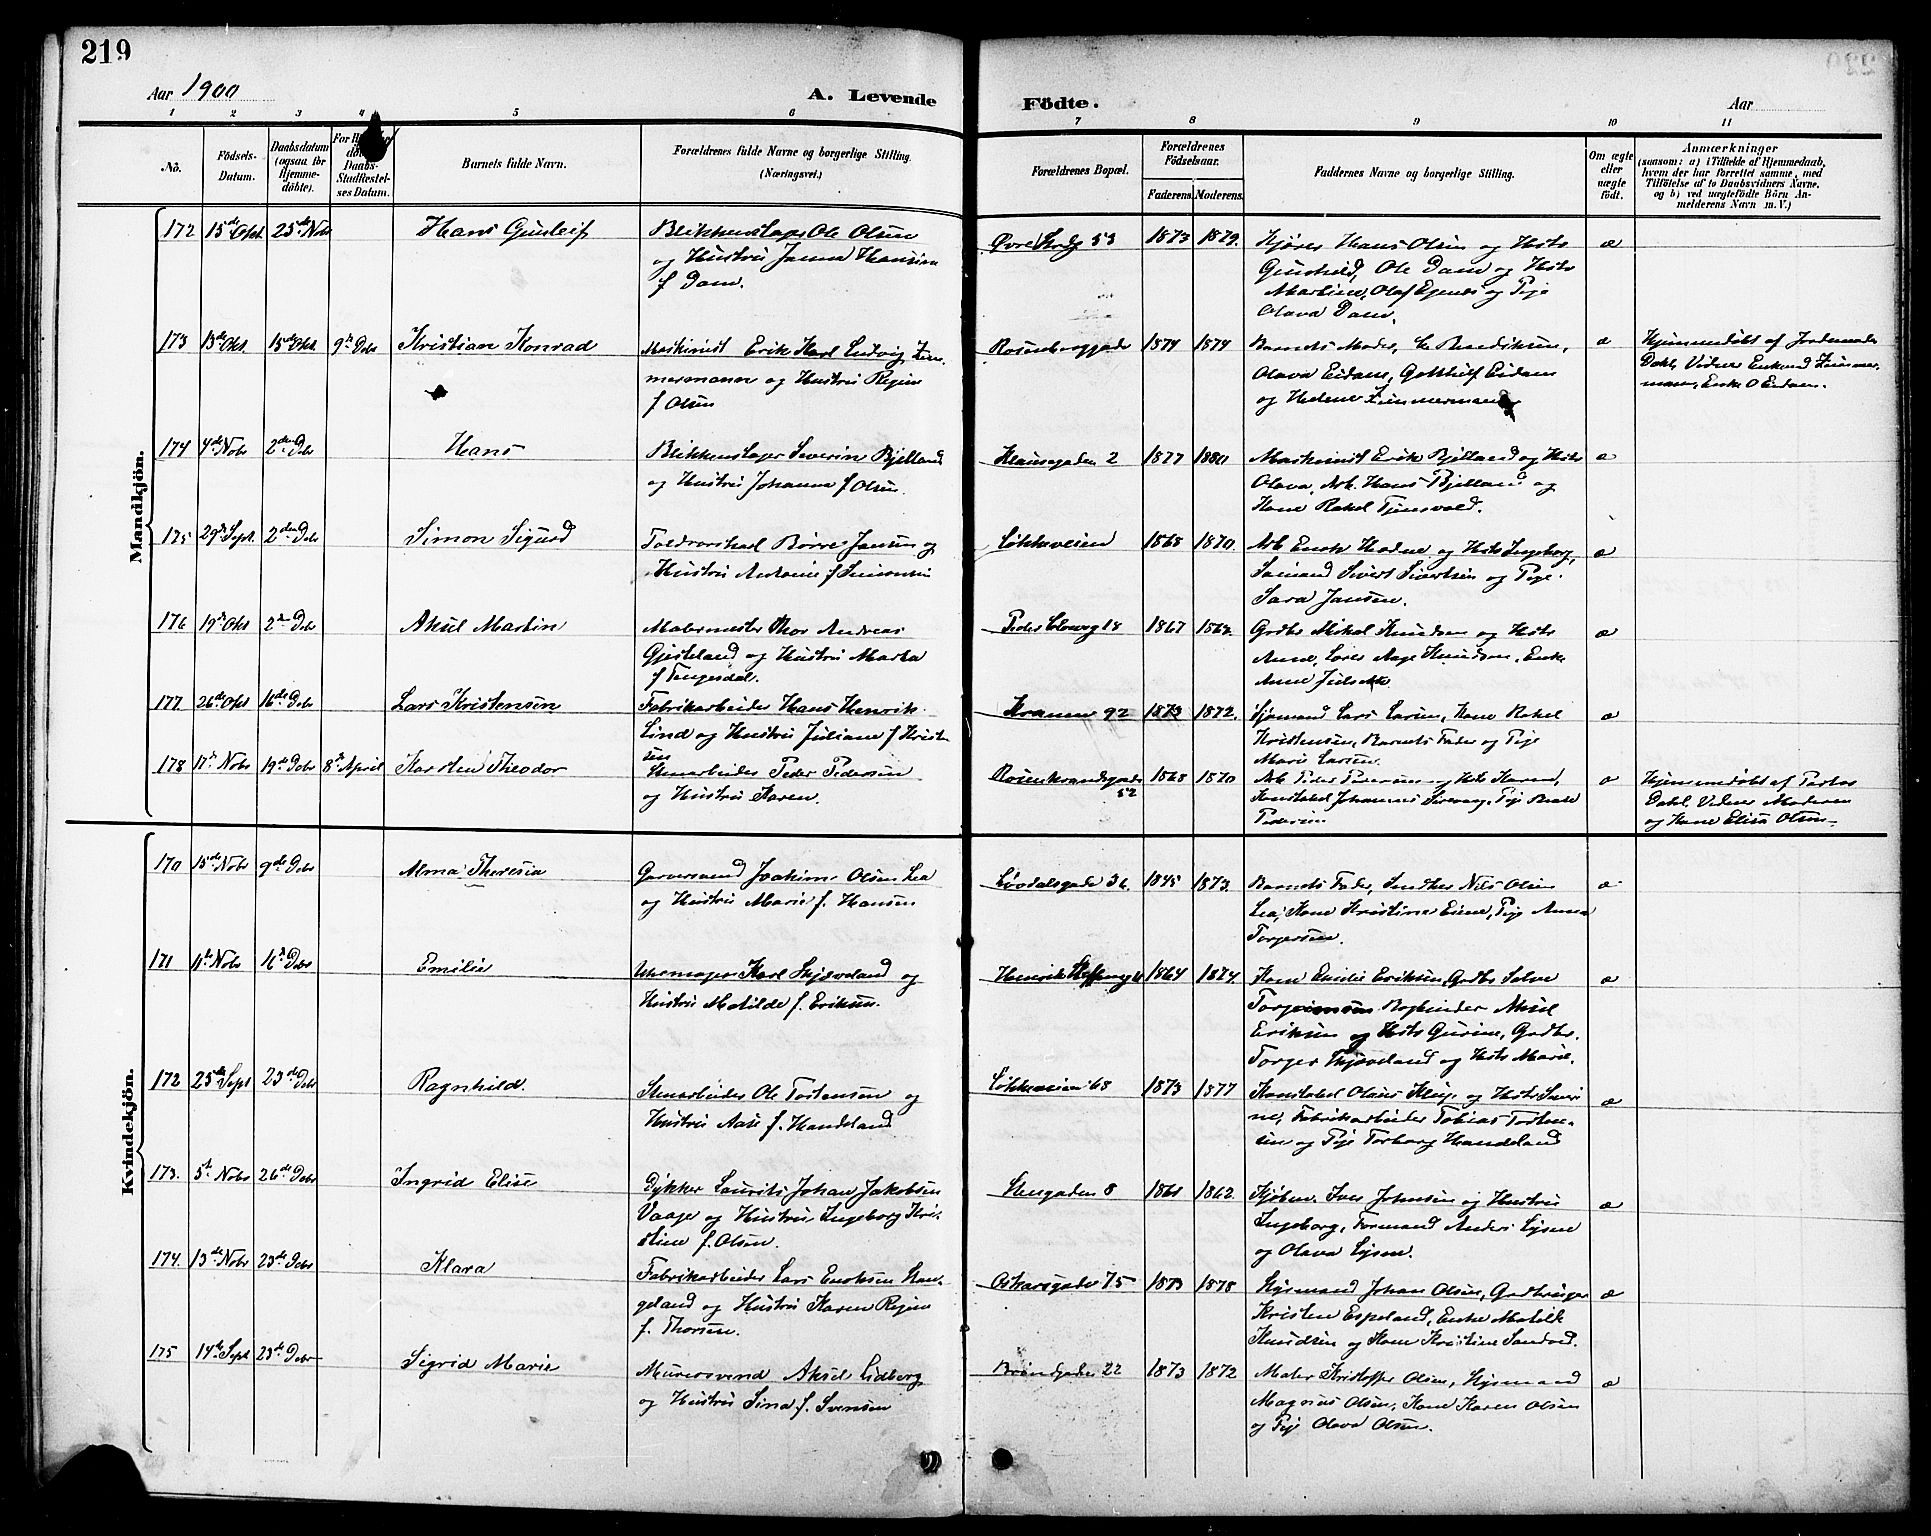 219
Aar 1900
A. Levende
Födte.
Aar
1 2 3 4 5 6 7 8 9 10 11
No.
Födsels-
Datum.
Daabsdatum
(ogsaa for
Hjemme-
döbte).
Barnets fulde Navn.
Forældrenes fulde Navne og borgerlige Stilling.
(Næringsvei.)
Forældrenes Bopæl.
Forældrenes
Födselsaar.
Faderens. Moderens.
Faddernes Navne og borgerlige Stilling.
Om ægte
eller
uægte
födt.
Anmærkninger
(saasom: a) i Tilfælde af Hjemmedaab,
hvem der har forrettet samme, med
Tilföielse af to Daabsvidners Navne,
og b) ved uægtefödte Börn An-
melderens Navn m. V.)
Mandkjön.
172 15de Okt 25de Nobr Hans Gunleif
Blikkenslager Ole Olsen
og Hustru Janna Hansine
f Dam.
Øvre Strdg 53 1873 1879.
Kjører Hans Olsen og Hstr
Gunhild, Ole Dam og Hstr
Martine, Olaf Egenes og Pige
Olava Dam.
æ
173 13de Okt. 15de Okt. 9de Debr Kristian Konrad
Maskinist Erik Karl Ludvig Zim-
mermann og Hustru Regine
f Olsen
Rosenberggade 1874 1874
Barnets Moder, C Bendiksen,
Olava Eidam, Gotthilf Eidam
og Helene Zimmermann
æ
Hjemmedøbt af Jordemoder
Dahl, Vidner Enkemd Zimmer-
mann, Enke O Eidam.
174 4de Nobr 2den Debr Hans
Blikkenslager Severin Bjelland
og Hustru Johanne f Olsen.
Klausegaden 2 1877 1880
Maskinist Erik Bjelland og Hstr
Olava, Arb. Hans Bjelland og
Kone Rakel Tjensvold.
æ
175 29de Sept. 2den Debr Simon Sigurd
Toldvorskarl Børre Jansen og
Hustru Antonie f Simonsen
Løkkeveien 1868 1870
Arb Enok Hodne og Hstr Ingeborg,
Sømand Sivert Sivertsen og Pige
Sara Jansen.
æ
176 19de Okt 2den Debr Aksel Martin
Malermester Thor Andreas
Gjesteland og Hustru Marta
f Tengesdal.
Peder Clowsg 18 1867
Grdbr Mikal Knudsen og Hstr
Anne, Lærer Aage Knudsen, Enke
Anne
æ
177 26de Okt 16de Debr Lars Kristensen
Fabrikarbeider Hans Henrik
Lind og Hustru Juliane f Krist-
sen
92 1873 1872.
Sjømand Lars Larsen, Kone Rakel
Kristensen, Barnets Fader og Pige
Marie Larsen.
æ
178 11te Nobr 19de Debr 8de April Karsten Theodor
Stenarbeider Peder Pedersen
og Hustru Karen.
Rosenkrandsgade
52
1868 1870
Arb Peder Pedersen og Hstr Karen,
Konstabel Johannes Sirevaag, Pige Berte
Pedersen
æ
Hjemmedøbt af Pastor
Dahl. Vidner Moderen
og Kone Elisa Olsen
Kvindekjön.
170 15de Nobr 9de Debr Alma Theresia
Garversvend Joakim Olsen Lea
og Hustru Marie f. Hansen
Løvdalsgade 36. 1845 1873.
Barnets Fader, Snedker Nils Olsen
Lea, Kone Kristine Eiene, Pige Anna
Torgersen.
æ
171 11te Nobr 16de Debr Emilie
Uhrmager Karl Skjæveland og
Hustru Matilde f. Eriksen.
Henrik Steffensg 1864 1874.
Kone Emilie Eriksen, Grdbr Salve
Torgrimsen Bogbinder Aksel
Eriksen og Hstr Gurine, Grdbr.
Torger Skjæveland og Hstr Marie.
æ
172 25de Sept 23de Debr Ragnhild.
Stenarbeider Ole Tostensen og
Hustru Aase f. Handeland
Løkkeveien 68 1873 1877
Konstabel Olaus Kluge og Hstr Seve-
ne, Fabrikarbeider Tobias Tosten-
sen og Pige Torborg Handeland
æ
173. 5te Nobr 26de Debr Ingrid Elise
Dykker Laurits Johan Jakobsen
Vaage og Hustru Ingeborg Kri-
stine f. Olsen.
Stengaden 8 1860 1862.
Kjøbm. Iver Johnsen og Hustru
Ingeborg, Formand Anders Lysne
og Olava Lysne.
æ
174. 13de Nobr 23de Debr Klara
Fabrikarbeider Lars Enoksen Han-
geland og Hustru Karen Regine
f. Thorsen.
Oskarsgade 75 1873 1878
Styrmand Johan Olsen, Gardbruger
Kristen Espeland, Enke Matilde
Knudsen og Kone Kristine Sandvd.
æ
175 14de Sept 23de Debr Sigrid Marie
Murersvend Aksel Lidberg
og Hustru Sina f. Svensen
Brøndgaden 22 1873 1872
Maler Kristoffer Olsen, Styrmand
Magnus Olsen, Kone Karen Olsen
og Pige Olava Olsen.
æ